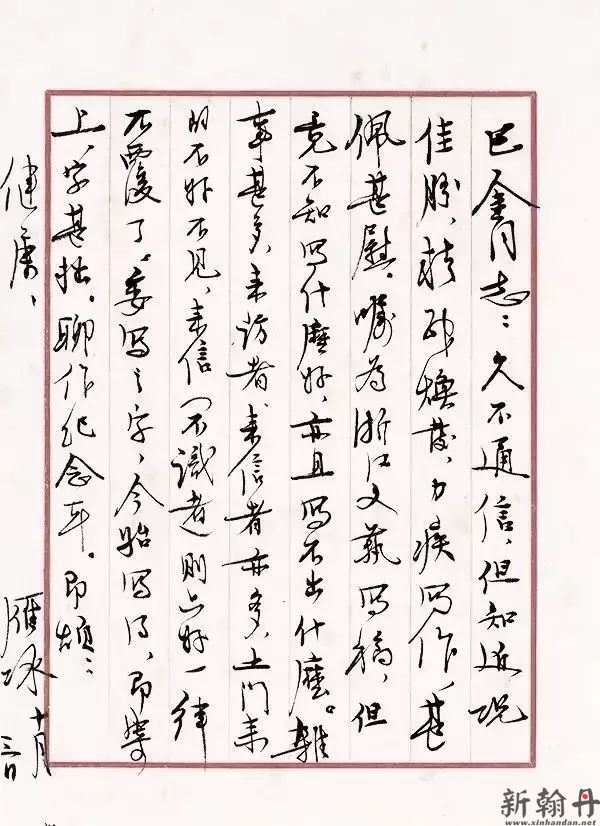 巴金同志：久不通信，但知近况
佳胜，精神焕发，力疾写作，甚
佩甚慰。嘱为浙江文藝写稿，但
竟不知写什麽好，亦且写不出什麽。雜
事甚多，来访者、来信者亦多，上门来
的不好不见，来信（不識者）则只好一律
不覆了。委写之字，今始写得，即寄
上，字甚拙，聊作纪念耳。即颂：
健康、
雁冰 十月
三日
新翰丹
www.xinhandan.net